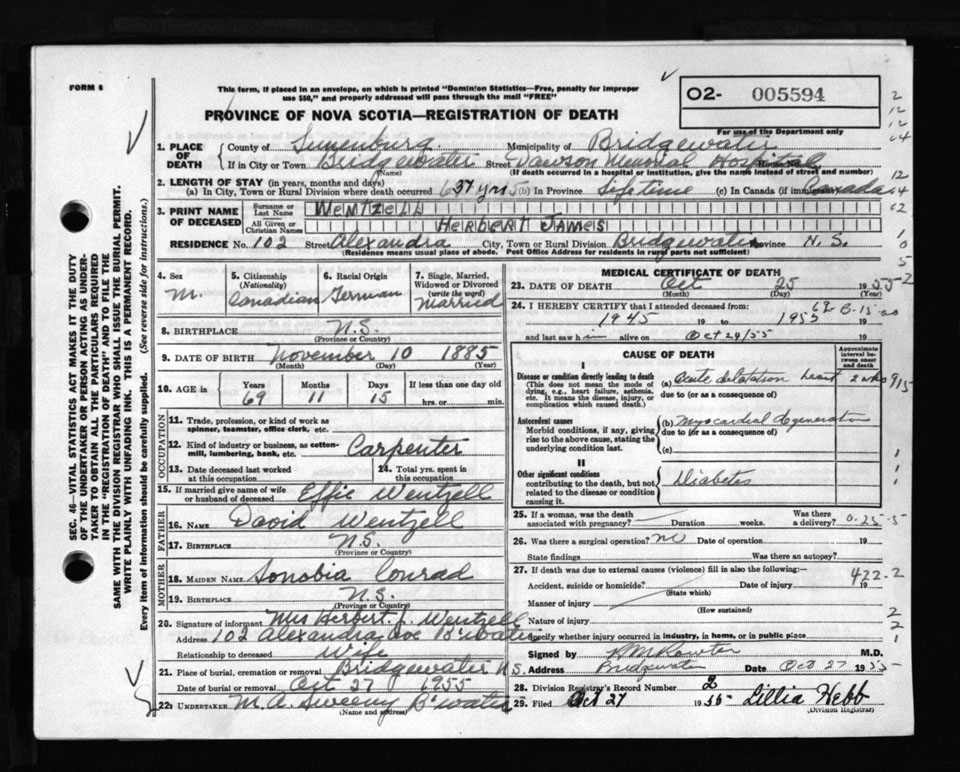 FORM 6
This form, if placed in an envelope, on which is printed "Dominion Statistics—Free, penalty for improper
use $50," and properly addressed will pass through the mail "FREE"
O2- 005594
For use of the Department only
PROVINCE OF NOVA SCOTIA—REGISTRATION OF DEATH
1. PLACE OF DEATH
County of Lunenburg. Municipality of Bridgewater
If in City or Town Bridgewater Street Dawson Memorial Hospital
(Name) (If death occurred in a hospital or institution, give the name instead of street and number)
2. LENGTH OF STAY (in years, months and days)
(a) In City, Town or Rural Division where death occurred 37 yrs (b) In Province Lifetime (c) In Canada (if immigrant) Canada
3. PRINT NAME OF DECEASED
Surname or Last Name Wentzell
All Given or Christian Names Herbert James
RESIDENCE No. 102 Street Alexandra City, Town or Rural Division Bridgewater Province N.S.
(Residence means usual place of abode. Post Office Address for residents of rural parts not sufficient)
4. Sex M.
5. Citizenship (Nationality) Canadian
6. Racial Origin German
7. Single, Married, Widowed or Divorced (write the word) Married
8. BIRTHPLACE N.S.
(Province or Country)
9. DATE OF BIRTH November 10 1885
(Month) (Day) (Year)
10. AGE in Years 69 Months 11 Days 15 If less than one day old hrs. or min.
OCCUPATION
11. Trade, profession, or kind of work as spinner, teamster, office clerk, etc.
12. Kind of industry or business, as cotton-mill, lumbering, bank, etc. Carpenter
13. Date deceased last worked at this occupation
14. Total yrs. spent in this occupation
15. If married give name of wife or husband of deceased Effie Wentzell
FATHER
16. NAME David Wentzell
17. BIRTHPLACE N.S.
(Province or Country)
MOTHER
18. MAIDEN NAME Sonobia Conrad
19. BIRTHPLACE N.S.
(Province or Country)
20. Signature of informant Mrs Herbert J. Wentzell
Address 102 Alexandra Ave B'water
Relationship to deceased Wife
21. Place of burial, cremation or removal Bridgewater N.S.
Date of burial or removal Oct 27 1955
22. UNDERTAKER M.A. Sweeny B'water
(Name and address)
MEDICAL CERTIFICATE OF DEATH
23. DATE OF DEATH Oct 25 1955
(Month) (Day) (Year)
24. I HEREBY CERTIFY that I attended deceased from:
1945 19 to 1955 19
and last saw him alive on Oct 24/55 19
CAUSE OF DEATH
Approximate interval between onset and death
I
Disease or condition directly leading to death
(This does not mean the mode of dying, e.g., heart failure, asthenia, etc. It means the disease, injury, or complication which caused death.)
(a) Acute dilatation heart 2 wks
due to (or as a consequence of)
Antecedent causes
Morbid conditions, if any, giving rise to the above cause, stating the underlying condition last.
(b) Myocardial degeneration
due to (or as a consequence of)
(c)
II
Other significant conditions
contributing to the death, but not related to the disease or condition causing it.
Diabetes
25. If a woman, was the death associated with pregnancy? Duration weeks. Was there a delivery?
26. Was there a surgical operation? no Date of operation 19
State findings Was there an autopsy?
27. If death was due to external causes (violence) fill in also the following:—
Accident, suicide or homicide? Date of injury 19
(State which)
422-2
Manner of injury
(How sustained)
Nature of injury
Specify whether injury occurred in industry, in home, or in public place
Signed by M.D.
Address Bridgewater Date Oct 27 1955
28. Division Registrar's Record Number 2
29. Filed Oct 27 1955 Lillia Hebb
(Division Registrar)
SEC. 46—VITAL STATISTICS ACT MAKES IT THE DUTY
OF THE UNDERTAKER OR PERSON ACTING AS UNDER-
TAKER TO OBTAIN ALL THE PARTICULARS REQUIRED
IN THE "REGISTRATION OF DEATH" AND TO FILE THE
SAME WITH THE DIVISION REGISTRAR WHO SHALL ISSUE THE BURIAL PERMIT.
WRITE PLAINLY WITH UNFADING INK. THIS IS A PERMANENT RECORD.
Every item of information should be carefully supplied. (See reverse side for instructions.)